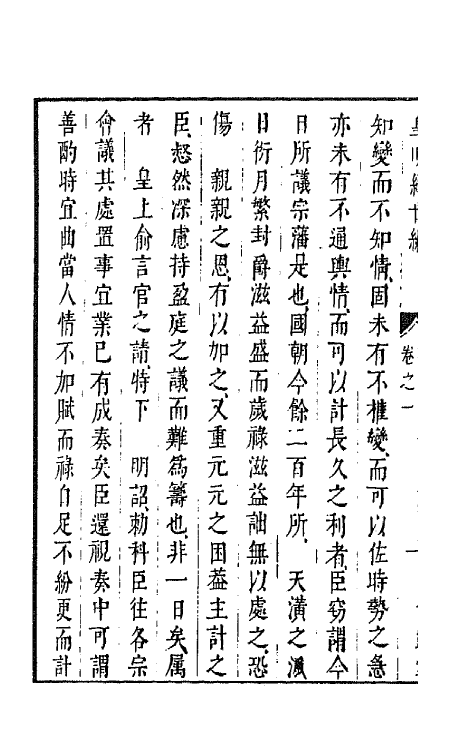 皇明經世編 卷之一
知變而不知情固未有不權變而可以佐時勢之急
亦未有不通輿情而可以計長久之利者臣窃謂今
日所議宗藩是也國朝今餘二百年所 天潢之派
日衍月繁封爵滋益盛而歲祿滋益詘無以處之恐
傷 親親之恩有以加之又重元元之困葢主計之
臣愁然深慮持盈庭之議而難爲籌也非一日矣属
者 皇上俞言官之請特下 明詔勅科臣往各宗
會議其處置事宜業已有成奏矣臣還視奏中可謂
善酌時宜曲當人情不加賦而祿自足不紛更而計